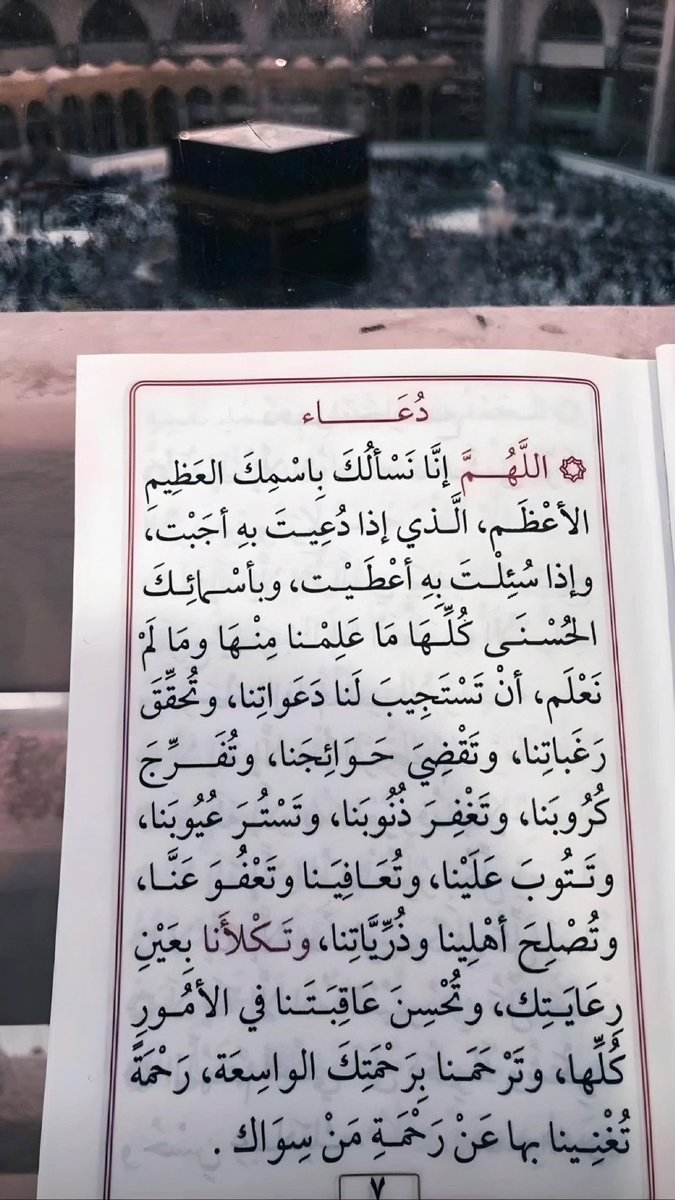 دُعَـــاء
۞ اللَّهُـمَّ إنَّا نَسْألُكَ بِاسْمِكَ العَظِيمِ
الأعْظَـمِ، الَّـذي إذا دُعِيـتَ بِهِ أجَبْتَ،
وإذا سُئِلْـتَ بِهِ أعْطَـيْـت، وبأسْـمائِـكَ
الحُسْنَـى كُلِّـهَا مَا عَلِمْـنا مِنْـهَا ومَا لَمْ
نَعْلَم، أنْ تَسْتَجِيبَ لَنا دَعَواتِنا، وتُحَقِّقَ
رَغَباتِنا، وتَقْضِيَ حَـوَائِجَنا، وتُفَــرِّجَ
كُرُوبَنا، وتَغْفِـرَ ذُنُوبَنا، وتَسْتُـرَ عُيُوبَنا،
وتَـتُوبَ عَلَيْنا، وتُعَـافِيَـنا وتَعْفُـوَ عَنَّـا،
وتُصْلِحَ أهْلِينا وذُرِّيَّاتِنا، وتَـكْلأَنا بِعَيْنِ
رِعَايَـتِك، وتُحْسِنَ عَاقِبَـتَـنا في الأمُـورِ
كُلِّها، وتَرْحَمَـنا بِرَحْمَتِكَ الواسِعَة، رَحْمَةً
تُغْنِـينا بها عَنْ رَحْمَـةِ مَنْ سِوَاك .
٧